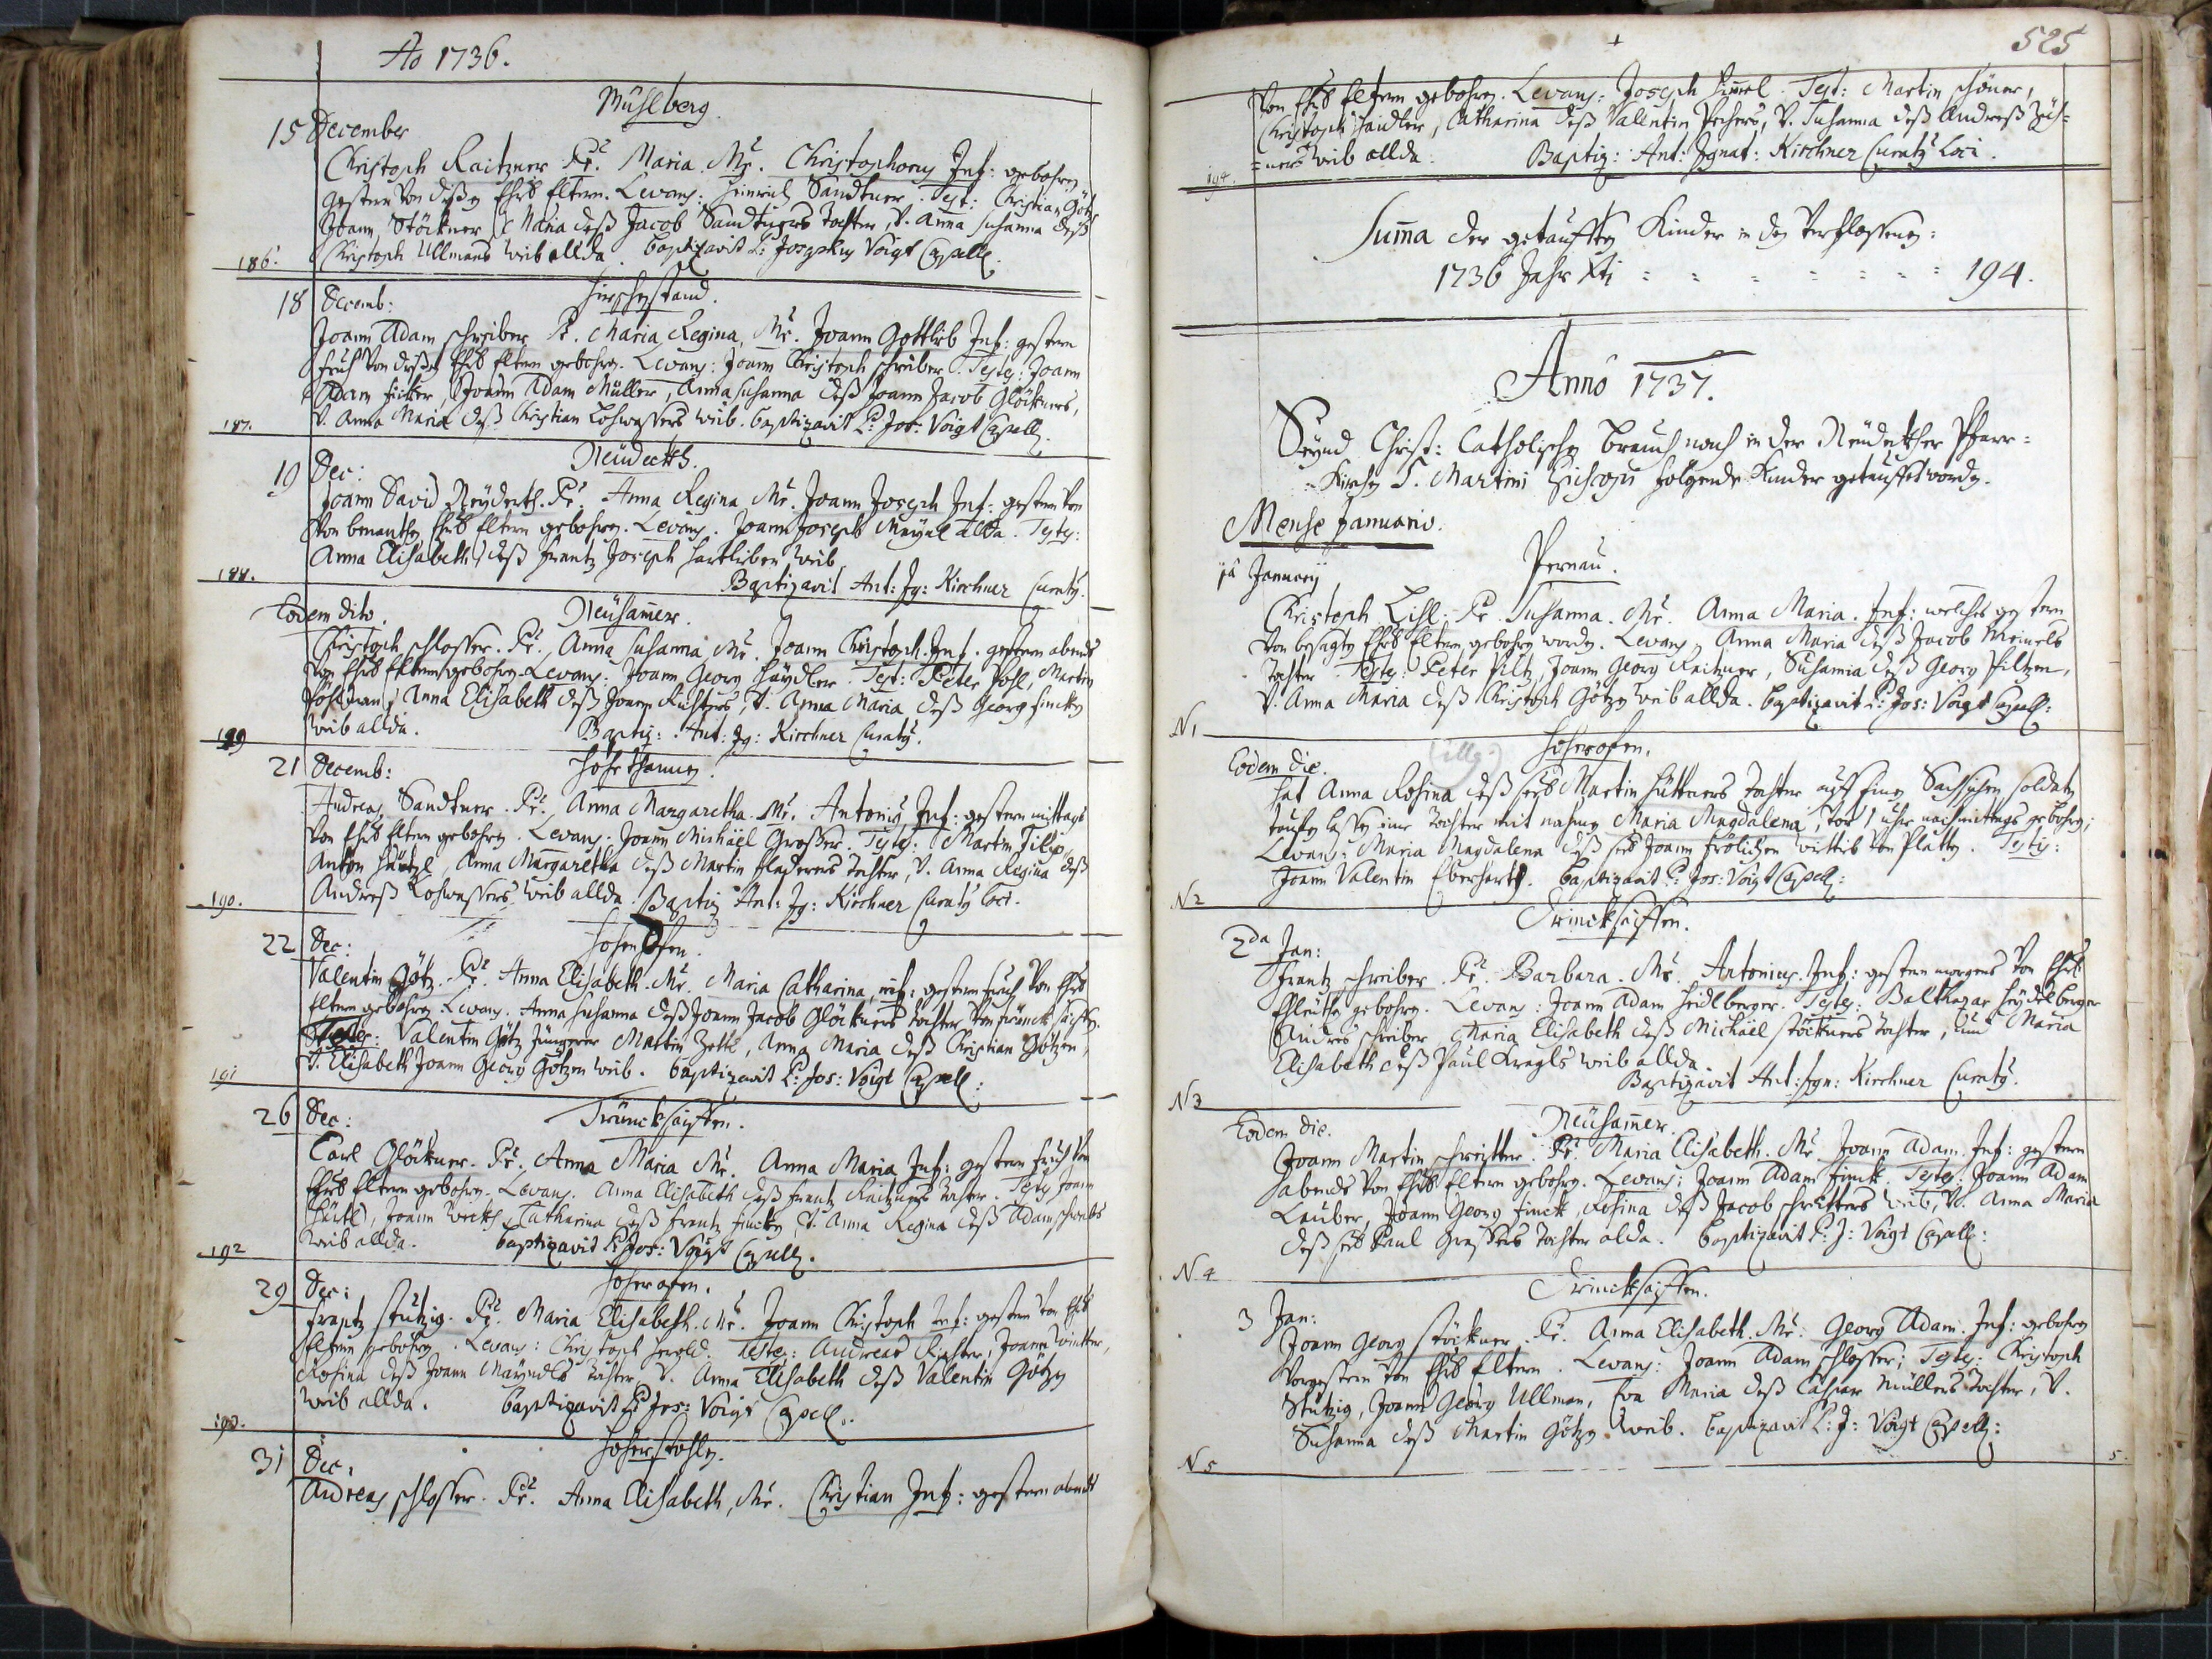 Ao 1736.
Mühlberg.
15 December
Christoph Raitzner Pr. Maria Mr. Christophorus Inf: gebohren
gestern von dißen Ehrb Eltern. Levans: Heinrich Sandtner. Test: Christian Götz
Joann Stöckner, Maria deß Jacob Sandtners Tochter, V. Anna Susanna deß
Christoph Ullmans weib allda. baptizavit P: Josephus Voigt Capell:
186.
Hirschenstand.
18 Decemb:
Joann Adam schreiber Pr. Maria Regina, Mr. Joann Gottlieb Inf: gestern
fruh von dißen Ehrb Eltern gebohren. Levans: Joann Christoph schreiber. Testes: Joann
Adam , Joann Adam Müller, Anna Susanna deß Joann Jacob Glöckners,
V. Anna Maria deß Christian Lohwassers weib. baptizavit P: Jos: Voigt Capell:
187.
Neüdeckh.
19 Dec:
Joann David Pr. Anna Regina Mr. Joann Joseph Inf: gestern
von benanten Ehrb Eltern gebohren. Levans. Joann Joseph allda. Testes:
Anna Elisabeth deß Frantz Joseph weib
Baptizavit Ant: Ig: Kirchner Curatus.
188.
Eodem dito. Neühammer.
Christoph schlosser. Pr. Anna Susanna Mr. Joann Christoph. Inf. gestern abends
von Ehrb Eltern gebohren. Levans: Joann Georg Häydler. Test: Peter Pohl, Martin
Anna Elisabeth deß Joann Richters, V. Anna Maria deß Georg fincken
weib allda. Baptiz: Ant: Ig: Kirchner Curatus.
189
21 Decemb: Hohethannen.
Andreas Sandtner. Pr. Anna Margaretha Mr. Antonius Inf: gestern mittags
von Ehrb Eltern gebohren. Levans. Joann Michäel Grosser. Testes: Martin Filip,
Anton , Anna Margaretha deß Martin Tochter, V. Anna Regina deß
Andreß Lohwassers weib allda. Baptiz Ant: Ig: Kirchner Curatus loci.
190.
22 Dec: Hohenofen.
Valentin Götz. Pr. Anna Elisabeth. Mr. Maria Catharina, inf: gestern fruh von Ehrb
Eltern gebohren. Levans. Anna Susanna deß Joann Jacob Glöckners Tochter von
Testes: Valentin Götz Jüngerer Martin , Anna Maria deß Christian Götzen,
V. Elisabeth Joann Georg Götzen weib. baptizavit P: Jos: Voigt Capell:
191
26 Dec: Trünckseiffen.
Carl Glöckner. Pr. Anna Maria Mr. Anna Maria Inf: gestern fruh von
Ehrb Eltern gebohren. Levans. Anna Elisabeth deß Frantz Raitzners Tochter. Testes Joann
, Joann , Catharina deß Frantz fincken, V. Anna Regina deß Adam schreibers
weib allda. baptizavit P: Jos: Voigt Capell.
192
29 Dec: Hoherofen.
Frantz stützig. Pr. Maria Elisabeth. Mr. Joann Christoph Inf: gestern von Ehrb
Eltern gebohren. Levans: Christoph Herold. Testes: Andreas Richter, Joann ,
Rosina deß Joann Tochter V. Anna Elisabeth deß Valentin Götzen
weib allda. baptizavit P: Jos: Voigt Capell:
193.
31 Dec:
Andreas schlosser. Pr. Anna Elisabeth, Mr. Christian Inf: gestern abends
525
von Ehrb Eltern gebohren. Levans: Joseph . Test: Martin schöner,
Christoph Haidler, Catharina deß Valentin , V. Susanna deß Andreß
=ners weib allda. Baptiz: Ant: Ignat: Kirchner Curatus Loci.
194.
Summa der getaufften Kinder in den Verflossenen:
1736 Jahr Xti = = = = = = = 194.
Anno 1737.
Seynd Christ: Catholischen brauch nach in der Neüdeckher Pfarr=
=Kirchen S. Martini Episcopi folgende Kinder getauffet worden.
Mense Januario.
Pernau.
1a January
Christoph Lihl. Pr. Susanna. Mr. Anna Maria. Inf: welches gestern
von besagten Ehrb Eltern gebohren worden. Levans Anna Maria deß Jacob Meinels
Tochter Testes: Peter Piltz, Joann Georg Raitzner, Susanna deß Georg Piltzen,
V. Anna Maria deß Christoph Götzen weib allda. baptizavit P: Jos: Voigt Capell:
N 1
(illg.) Hoherofen.
Eodem die.
hat Anna Rosina deß seeb Martin Hüttners Tochter auf einen Sachsischen soldaten
taufen lassen eine Tochter mit nahmen Maria Magdalena, vor 1 uhr nachmittags gebohren;
Levans: Maria Magdalena deß seeb Joann frölichen wittib von Platten. Testis:
Joann Valentin Eberhardt. baptizavit P: Jos: Voigt Capell:
N 2
Trinckseiffen.
2da Jan:
Frantz schreiber Pr. Barbara. Mr. Antonius. Inf: gestern morgens von Ehrb
Ehleuthe gebohren. Levans: Joann Adam Heidlberger. Testes: Balthazar Heydelberger
Andres schreiber Maria Elisabeth deß Michäel stöckners Tochter, und Maria
Elisabeth deß Paul weib allda.
Baptizavit Ant: Ign: Kirchner Curatus.
N 3
Eodem die. Neühammer.
Joann Martin Pr. Maria Elisabeth. Mr Joann Adam. Inf: gestern
abends von Ehrb Eltern gebohren. Levans: Joann Adam finck. Testes: Joann Adam
Lauber, Joann Georg finck, Rosina deß Jacob weib, V. Anna Maria
deß seeb Paul Grossers Tochter alda. baptizavit P: J: Voigt Capell:
N 4
Trinckseiffen.
3 Jan:
Joann Georg stöckner. Pr. Anna Elisabeth. Mr: Georg Adam. Inf: gebohren
Vorgestern von Ehrb Eltern. Levans: Joann Adam schlosser; Testes: Christoph
Stützig, Joann Georg Ullman, Eva Maria deß Caspar Müllers Tochter, V.
Susanna deß Martin Götzen weib. baptizavit P: J: Voigt Capell:
N 5
5.